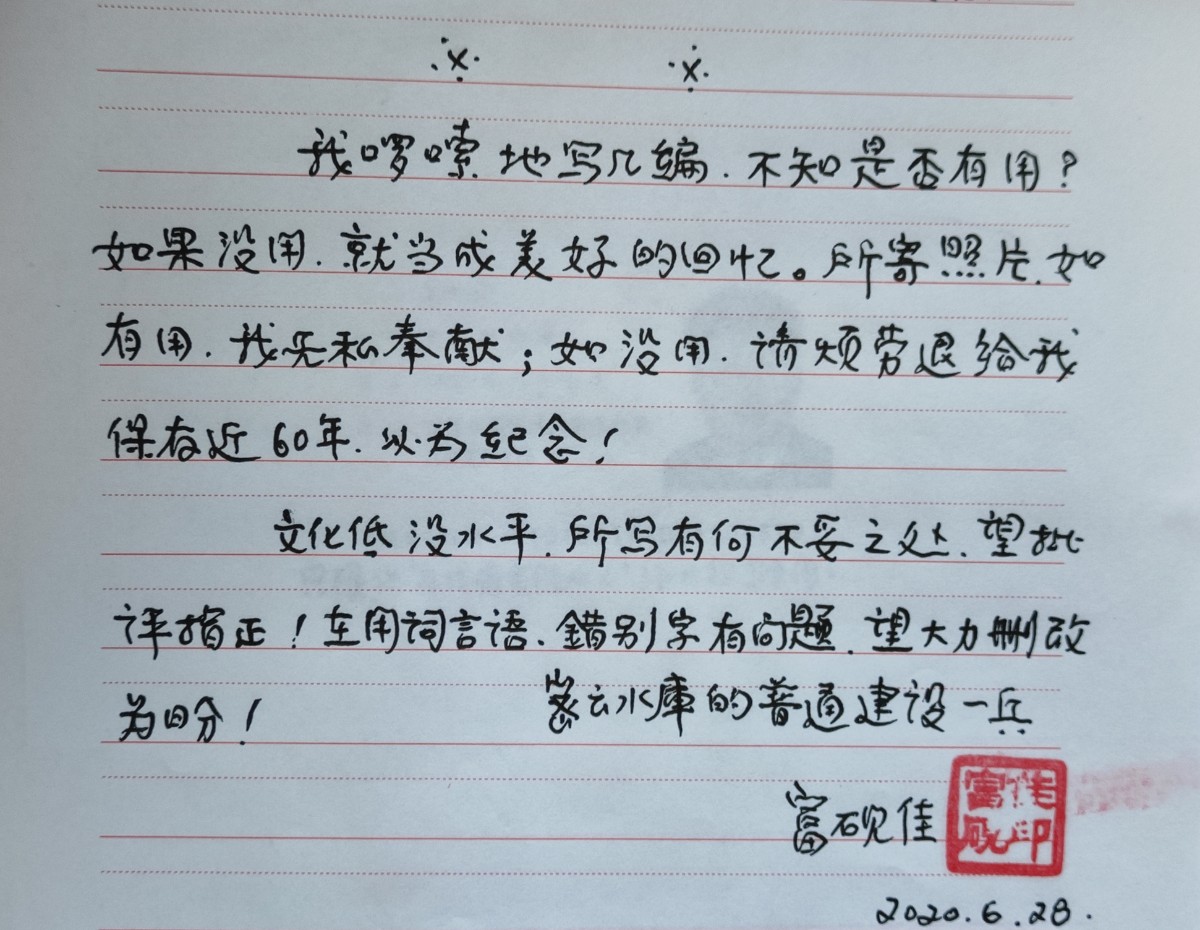 ※ ※
我啰嗦地写几编.不知是否有用?
如果没用.就当成美好的回忆。所寄照片.如
有用.我无私奉献;如没用.请烦劳退给我
保存近60年.以为纪念!
文化低没水平.所写有何不妥之处.望批
评指正!在用词言语.错别字有问题.望大力删改
为日分!
密云水庫的普通建设一兵
富砚佳
富砚佳印
2020.6.28.